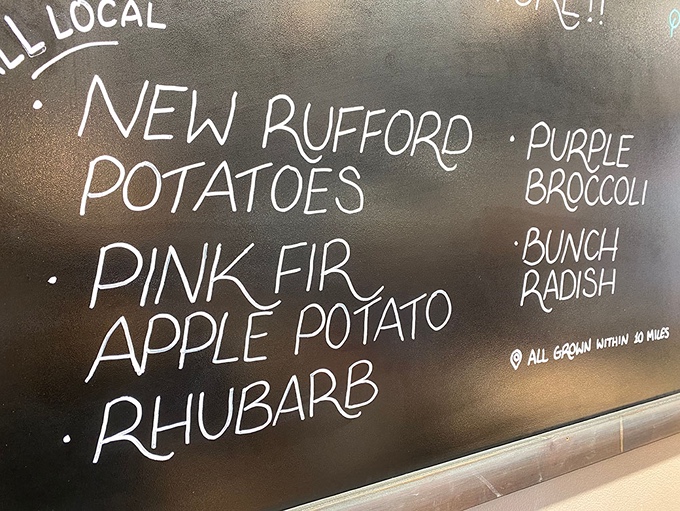 ALL LOCAL
• NEW RUFFORD
POTATOES
• PINK FIR
APPLE POTATO
• RHUBARB
• PURPLE
BROCCOLI
• BUNCH
RADISH
ALL GROWN WITHIN 10 MILES